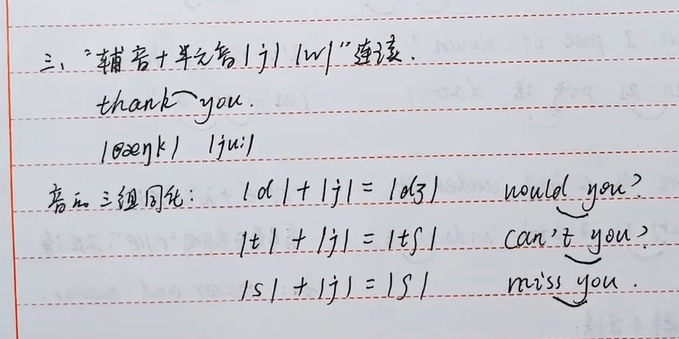 三、"辅音+半元音/j/ /w/"连读.
thank you.
/θæŋk/ /ju:/
音的三组同化: /d/+/j/=/dʒ/ would you?
/t/+/j/=/tʃ/ can't you?
/s/+/j/=/ʃ/ miss you.